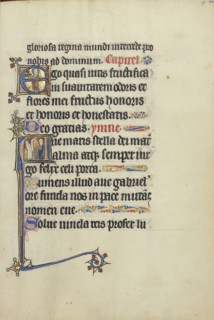 gloriosa regina mundi intercede pro
nobis ad dominum. Capitel
Ego quasi vitis fructifica
in suavitatem odoris et
flores mei fructus honoris
et honoris et honestatis.
Deo gratias. ymne.
Ave maris stella dei mat
alma atq3 semper uir
go felix celi porta.
Sumens illud ave gabriel
ore funda nos in pace mutas
nomen eve.
Solve vincla reis profer lu